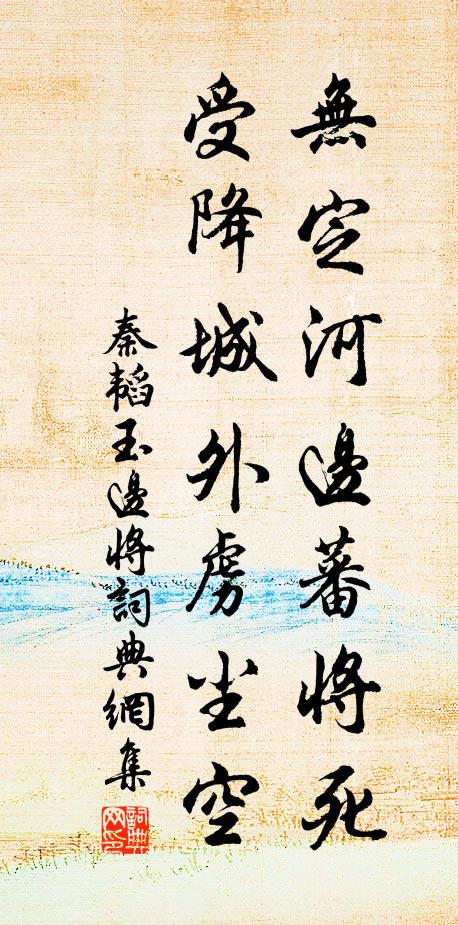 無定河邊蕃將死
受降城外虜尘空
秦韜玉邊將詞典網集
詞典网印